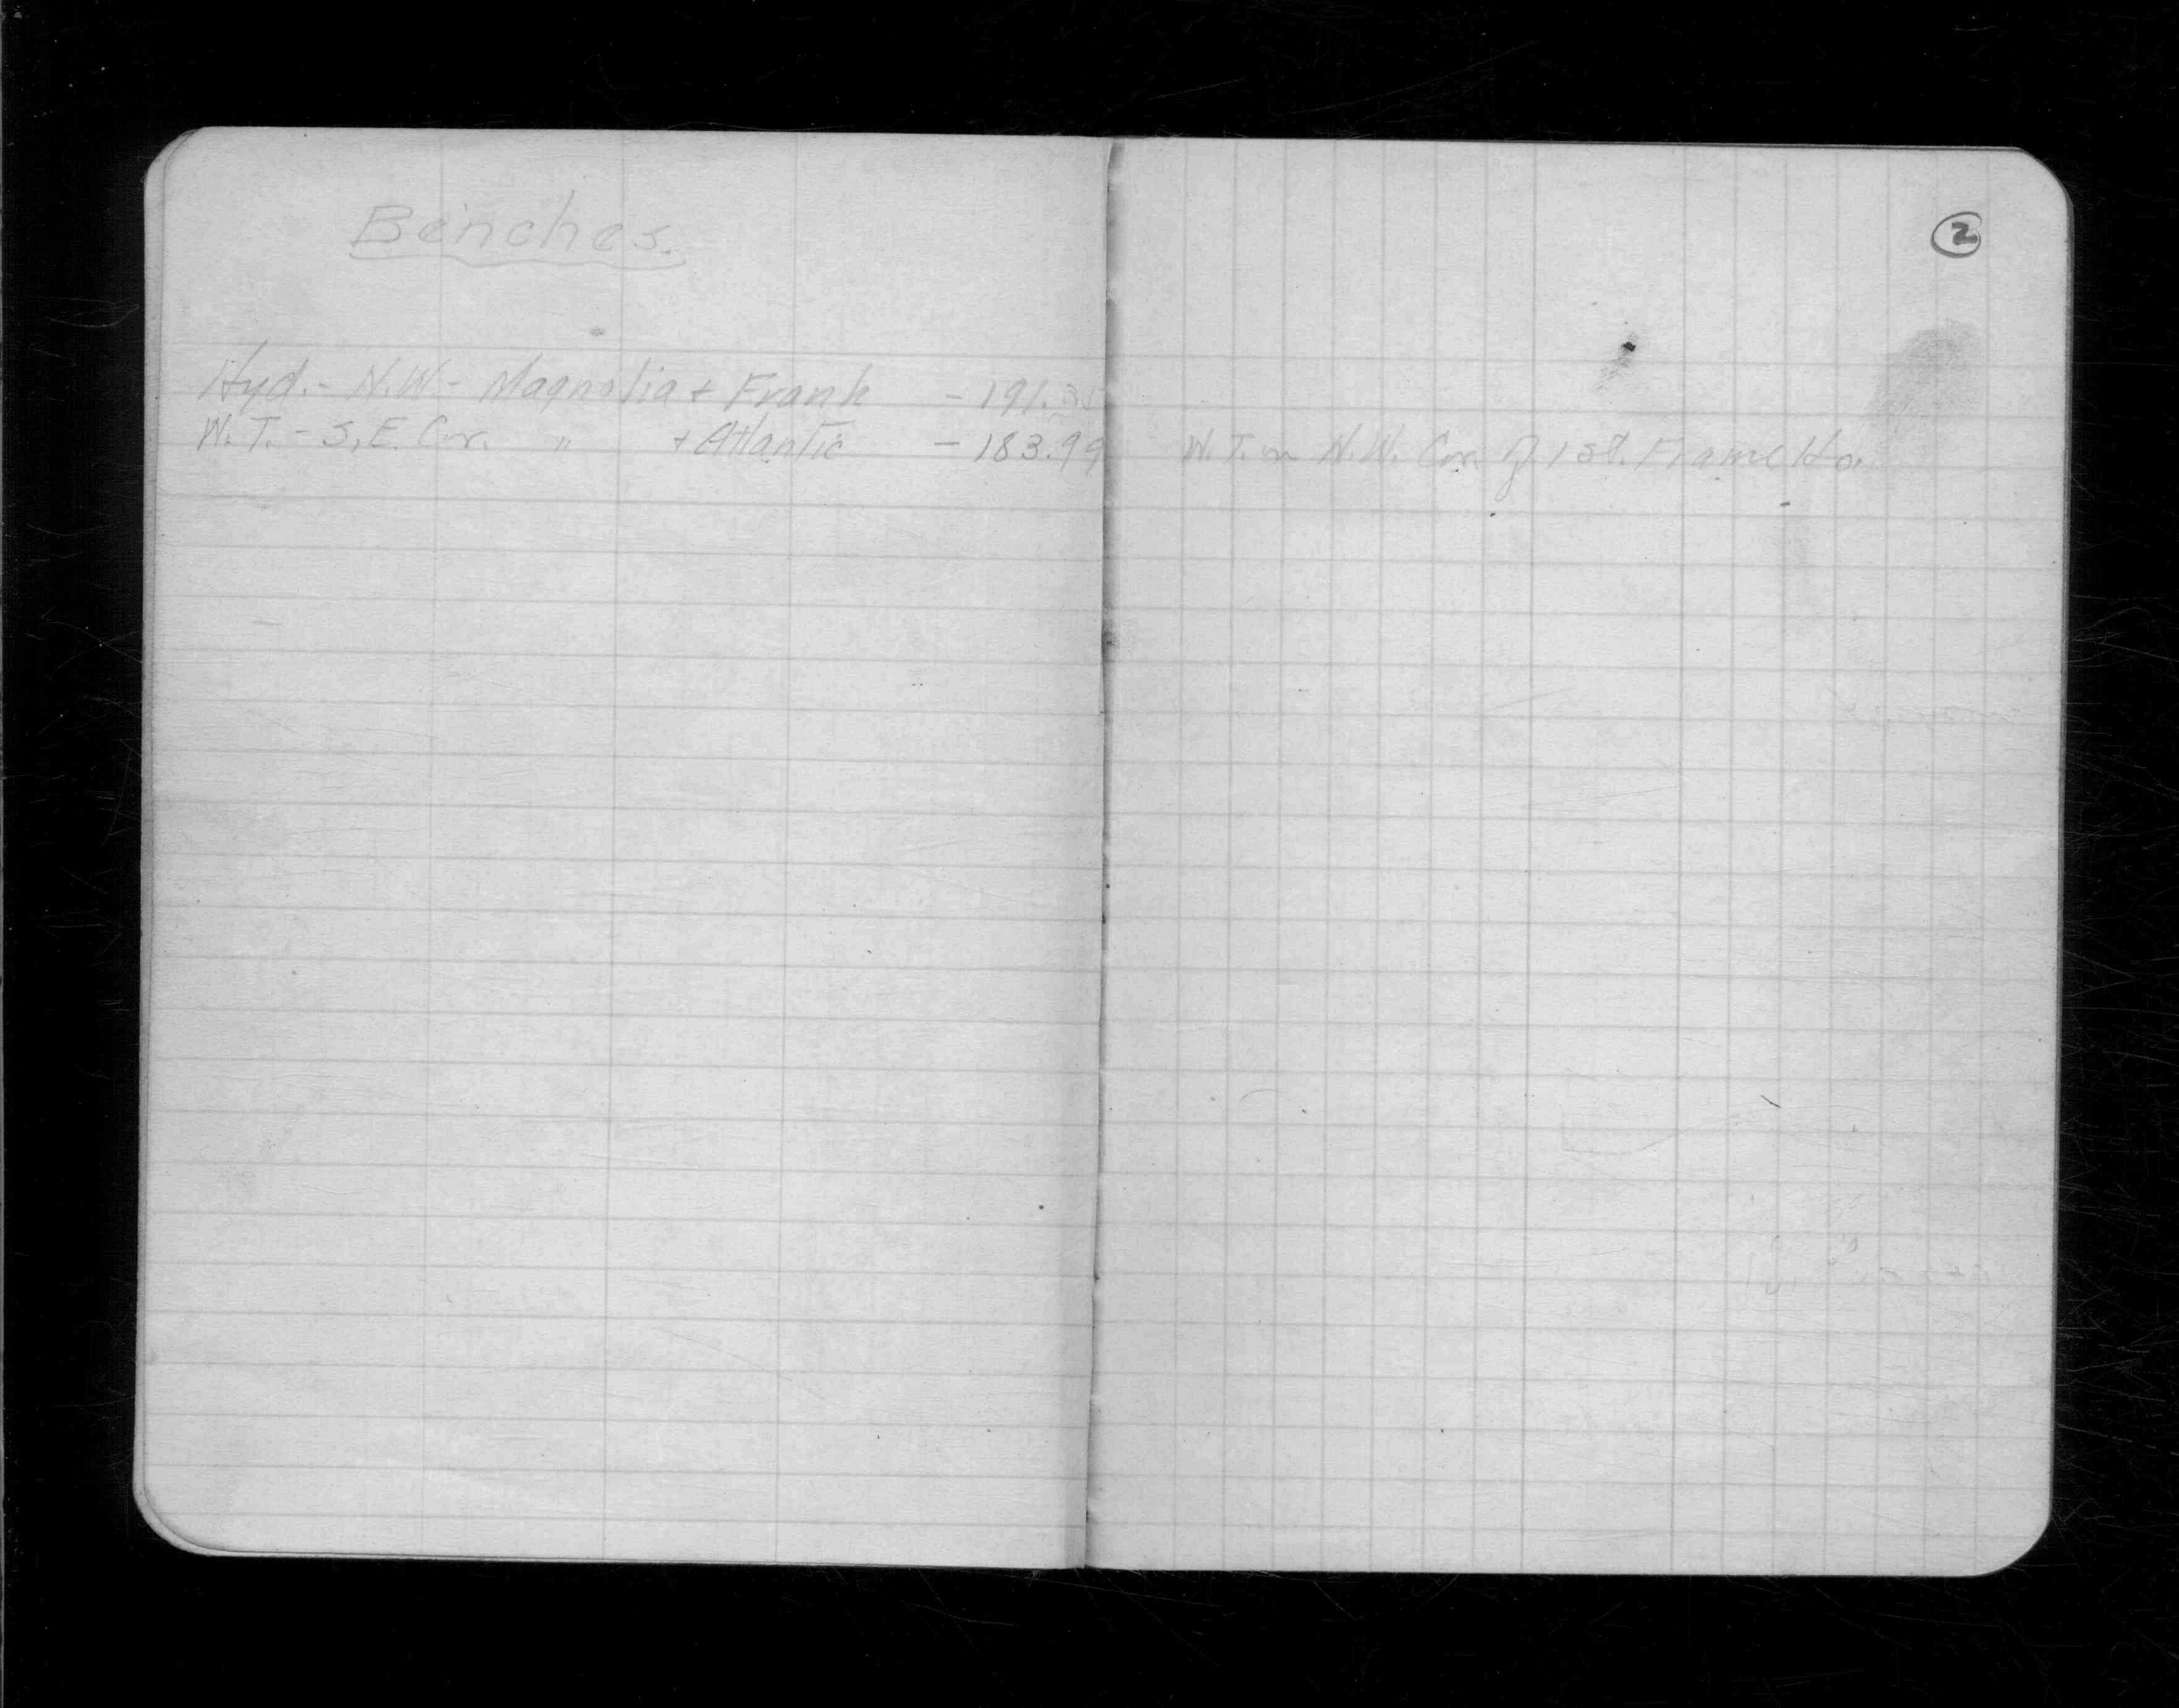 Benches.
Hyd. - N.W. - Magnolia + Frank -
W.T. - S.E. Cor. " + Atlantic - 183.99
②
W.T. on N.W. Cor. of 1st. Frame Ho.